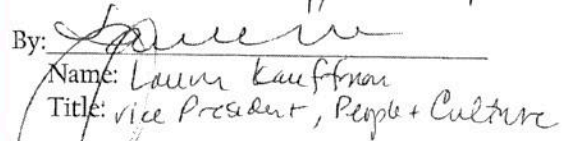 By:
Name: Lauren Kauffman
Title: vice President, People + Culture